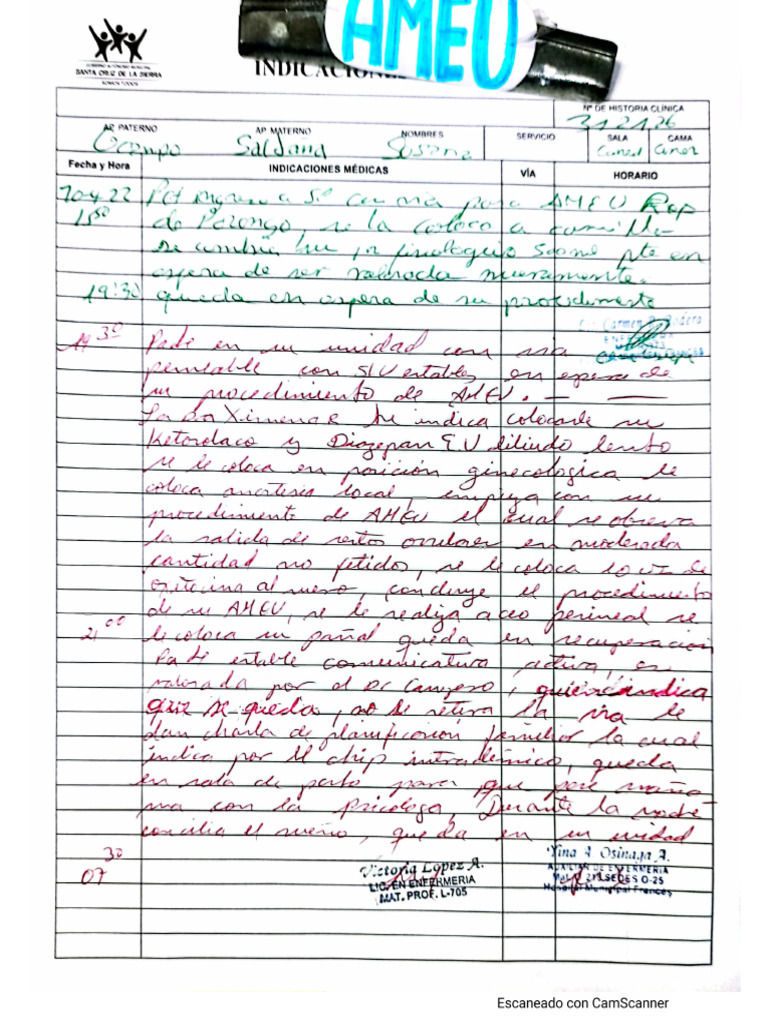 AMEU
SANTA CRUZ DE LA SIERRA
SOMOS TODOS
INDICACIONE
Nº DE HISTORIA CLÍNICA
312126
AP. PATERNO AP. MATERNO NOMBRES SERVICIO SALA CAMA
Ocampo Saldaña Susana
Fecha y Hora INDICACIONES MÉDICAS VÍA HORARIO
Pct ingresa a para AMEU
15:30 de se la coloco a camilla
se cambia fisiologico pte en
espera de ser valorada nuevamente.
19:30 queda en espera de su procedimiento
19 30 Pacte en su unidad con via
permeable con SV estables, en espera de
su procedimiento de AMEU. —
La Dra Ximena indica colocarle su
Ketorolaco y Diazepan E.V diliudo lento
se le coloca en posición ginecologica le
coloca anestesia local, empieza con su
procedimiento de AMEU el cual se observa
la salida de restos ovulares en moderada
cantidad no fetidos, se le coloca 10 UI de
oxitocina al suero, concluye el procedimiento
de su AMEU, se le realiza aceo perineal se
21 00 le coloca su pañal queda en recuperacion
estable comunicativa activa, es
valorada por el Dr , quien indica
que se queda, no se retira la via le
dan charla de planificasión familiar la cual
indica por el chip intradermico, queda
en sala de parto para que pase maña-
na con la Psicologa, Durante la noche
concilia el sueño, queda en su unidad
07 30
Victoria López A.
LIC. EN ENFERMERIA
MAT. PROF. L-705
Yina A. Osinaga A.
AUXILIAR DE ENFERMERIA
SEDES O-25
Hospital Municipal Frances
Escaneado con CamScanner